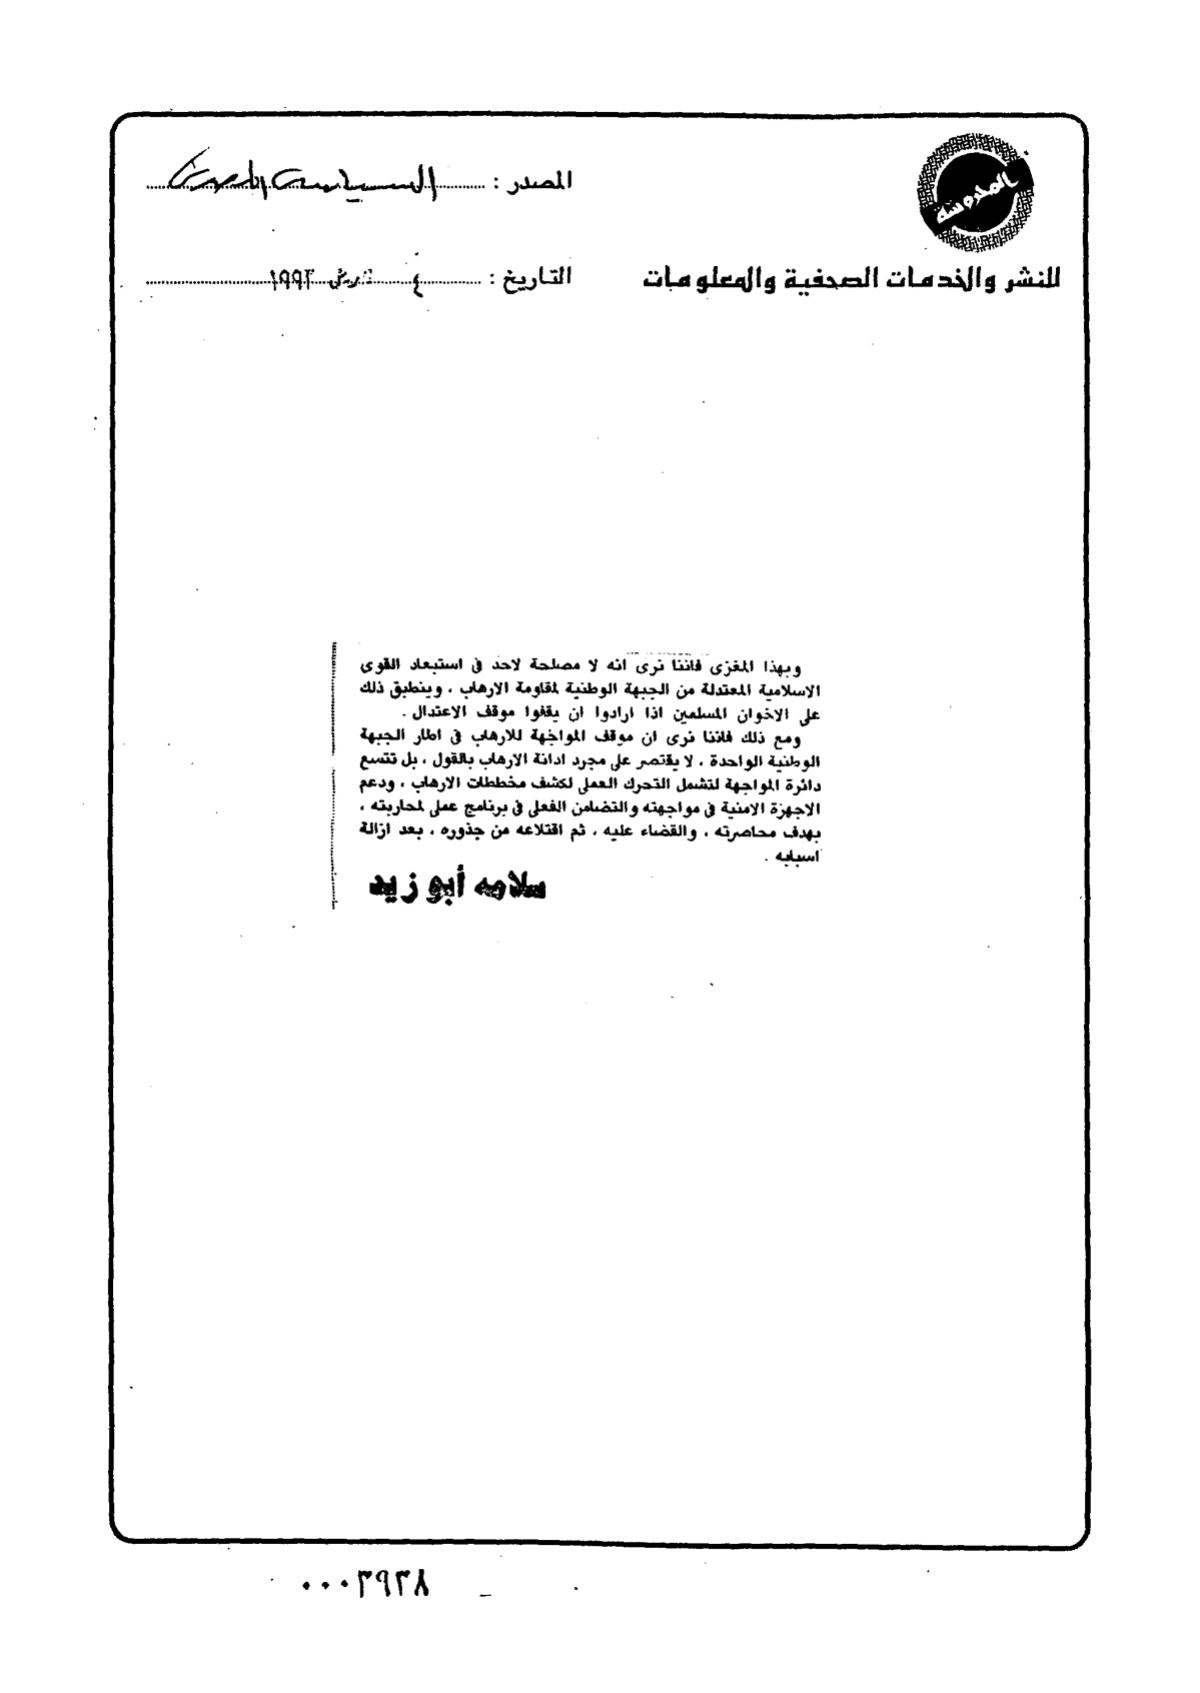 المحروسة
للنشر والخدمات الصحفية والمعلومات
المصدر : السياسى المصرى
التاريخ : ٤ ١٩٩٣
وبهذا المغزى فاننا نرى انه لا مصلحة لاحد فى استبعاد القوى
الاسلامية المعتدلة من الجبهة الوطنية لمقاومة الارهاب ، وينطبق ذلك
على الاخوان المسلمين اذا ارادوا ان يقفوا موقف الاعتدال .
ومع ذلك فاننا نرى ان موقف المواجهة للارهاب فى اطار الجبهة
الوطنية الواحدة ، لا يقتصر على مجرد ادانة الارهاب بالقول ، بل تتسع
دائرة المواجهة لتشمل التحرك العملى لكشف مخططات الارهاب ، ودعم
الاجهزة الامنية فى مواجهته والتضامن الفعلى فى برنامج عملى لمحاربته ،
بهدف محاصرته ، والقضاء عليه ، ثم اقتلاعه من جذوره ، بعد ازالة
اسبابه .
سلامه أبو زيد
٠٠٠٣٩٣٨